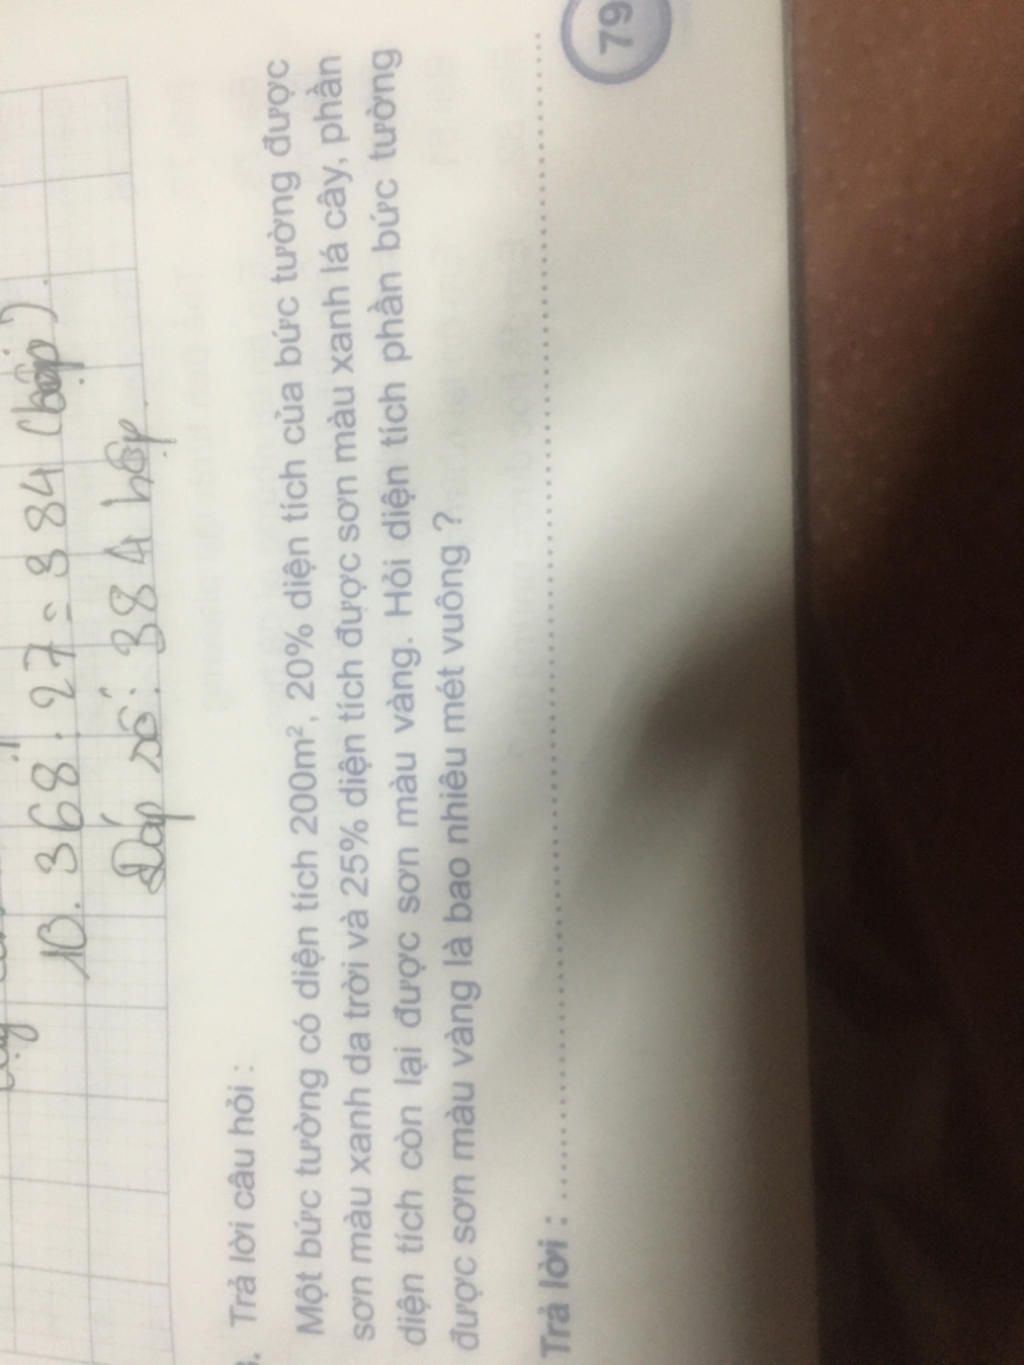 10.368 : 27 = 384 (hộp).
Đáp số : 384 hộp.
Trả lời câu hỏi :
Một bức tường có diện tích 200m², 20% diện tích của bức tường được
sơn màu xanh da trời và 25% diện tích được sơn màu xanh lá cây, phần
diện tích còn lại được sơn màu vàng. Hỏi diện tích phần bức tường
được sơn màu vàng là bao nhiêu mét vuông ?
Trả lời : ....................
79